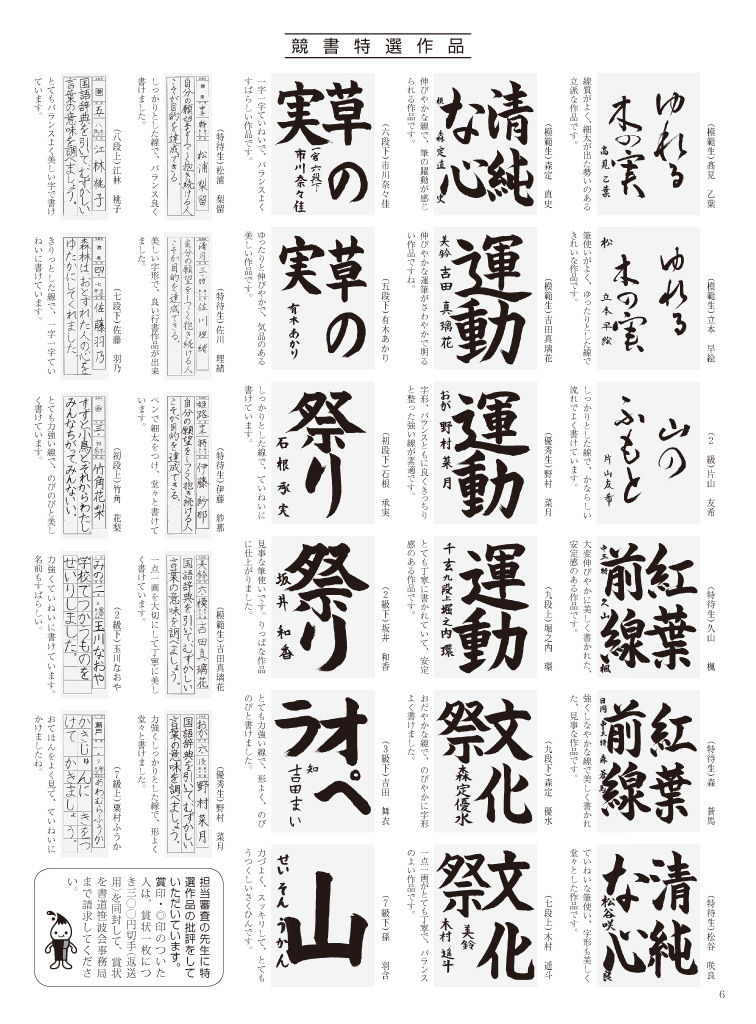 競書特選作品
ゆれる
木の実
高見乙葉
(模範生)髙見 乙葉
線質がよく、細太が出た勢いのある
立派な作品です。
ゆれる
木の実
松
立本早絵
(模範生)立本 早絵
筆使いがよく、ゆったりとした線で
きれいな作品です。
山の
ふもと
片山友希
(2 級)片山 友希
しっかりとした線で、かならしい
流れでよく書けています。
紅葉
前線
中三特
久山 楓
(特待生)久山 楓
大変伸びやかに美しく書かれた、
安定感のある作品です。
紅葉
前線
日岡 中大特 森 蒼馬
(特待生)森 蒼馬
強くしなやかな線で美しく書かれ
た、見事な作品です。
清純
な心
松谷咲良
(特待生)松谷 咲良
ていねいな筆使い、字形も美しく
堂々とした作品です。
清純
な心
森定直史
(模範生)森定 直史
伸びやかな線で、筆の躍動が感じ
られる作品です。
運動
美鈴 吉田真璃花
(模範生)吉田真璃花
伸びやかな運筆がさわやかで明る
い作品ですね。
運動
おが 野村菜月
(優秀生)野村 菜月
字形、バランスともに良くきっちり
と整った強い線が素適です。
運動
千玄九段上堀之内環
(九段上)堀之内 環
とても丁寧に書かれていて、安定
感のある作品です。
文化
祭
森定優水
(九段下)森定 優水
おだやかな線で、のびやかに字形
よく書けました。
文化
祭
美鈴
木村遥斗
(七段上)木村 遥斗
一点一画がとても丁寧で、バランス
のよい作品です。
草の
実
一宮 六段下
市川奈々佳
(六段下)市川奈々佳
一字一字ていねいで、バランスよく
すばらしい作品です。
草の
実
有木あかり
(五段下)有木あかり
ゆったりと伸びやかで、気品のある
美しい作品です。
祭り
石根承実
(初段下)石根 承実
しっかりとした線で、ていねいに
書けています。
祭り
坂井和香
(2級下)坂井 和香
見事な筆使いです。りっぱな作品
に仕上がりました。
オペ
ラ
知
吉田まい
(3級下)吉田 舞衣
とても力強い線で、形よく、のび
のびと書けました。
山
せいそん うかん
(7級下)孫 羽含
力づよく、スッキリして、とても
うつくしいさくひんです。
自分の願望をしつく抱き続ける人
こそが目的を達成できる。
松浦梨留
(特待生)松浦 梨留
しっかりとした線で、バランス良く
書けました。
清月
佐川理緒
自分の願望をしつく抱き続ける人
こそが目的を達成できる。
(特待生)佐川 理緒
美しい字形で、良い行書作品が出来
ました。
姫路
伊藤紗那
自分の願望をしつく抱き続ける人
こそが目的を達成できる。
(特待生)伊藤 紗那
ペンで細太をつけ、堂々と書けて
います。
美鈴 六 模
吉田真璃花
国語辞典を引いて、むずかしい
言葉の意味を調べましょう。
(模範生)吉田真璃花
一点一画を大切にして丁寧に美し
く書けています。
おが 六 優
野村菜月
国語辞典を引いて、むずかしい
言葉の意味を調べましょう。
(優秀生)野村 菜月
力強くしっかりとした線で、形よく
堂々と書けました。
五
江林桃子
国語辞典を引いて、むずかしい
言葉の意味を調べましょう。
(八段上)江林 桃子
とてもバランスよく美しい字で書け
ています。
四
佐藤羽乃
森林は、おとずれた人の心を
ゆたかにしてくれました。
(七段下)佐藤 羽乃
きりっとした線で、一字一字てい
ねいに書けています。
竹角花梨
すずと、小鳥と、それからわたし、
みんなちがって、みんないい。
(初段上)竹角 花梨
とても力強い線で、のびのびと美し
く書けています。
みの
玉川なおや
学校でつかうものを
せいりしました。
(2級下)玉川なおや
力強くていねいに書けています。
名前もすばらしい。
瀬戸
あわむらふうか
かきじゅんに きをつ
けて かきましょう。
(7級上)粟村ふうか
おてほんをよく見て、ていねいに
かけましたね。
担当審査の先生に特
選作品の批評をして
いただいています。
賞印・◎印のついた
人は、賞状一枚につ
き三〇〇円切手(返送
用)を同封して、賞状
を書道笹波会事務局
まで請求してくださ
い。
6